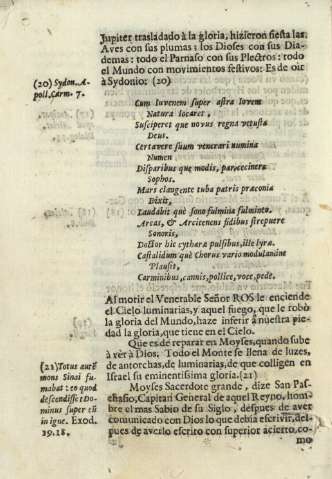 Jupiter trasladado à la gloria, hizieron fiesta las
Aves con sus plumas: los Dioses con sus Dia-
demas: todo el Parnaso con sus Plectros: todo
el Mundo con movimientos festivos: Es de oir
à Sydonio: (20)
(20) Sydon. A-
poll. Carm. 7.
Cum Iuvenem super astra Iovem
Natura locaret,
Susciperet que novus regna vetusta
Deus.
Certavere suum venerari numina
Numen
Disparibus que modis, par cecinere
Sophos.
Mars clangente tuba patris præconia
Dixit,
Laudabit què sono fulmina fulmineo.
Arcas, & Arcitenens fidibus strepuere
Sonoris,
Doctor hic cytharæ pulsibus, ille lyræ.
Castalidum què Chorus vario modulamine
Plausit,
Carminibus, cannis, pollice, voce, pede.
Al morir el Venerable Señor ROS le enciende
el Cielo luminarias, y aquel fuego, que le robò
la gloria del Mundo, haze inferir à nuestra pie-
dad la gloria, que tiene en el Cielo.
Que es de reparar en Moyses, quando sube
à vèr à Dios. Todo el Monte se llena de luzes,
de antorchas, de luminarias, de que colligen en
Israel su eminentissima gloria. (21)
(21) Totus autē
mons Sinai fu-
mabat: eo quod
descendisset Do-
minus super eū
in igne. Exod.
19. 18.
Moyses Sacerdote grande, dize San Pas-
chasio, Capitan General de aquel Reyno, hom-
bre el mas Sabio de su Siglo, despues de aver
comunicado con Dios lo que debia escrivir, des-
pues de averlo escrito con superior acierto, co-
mo